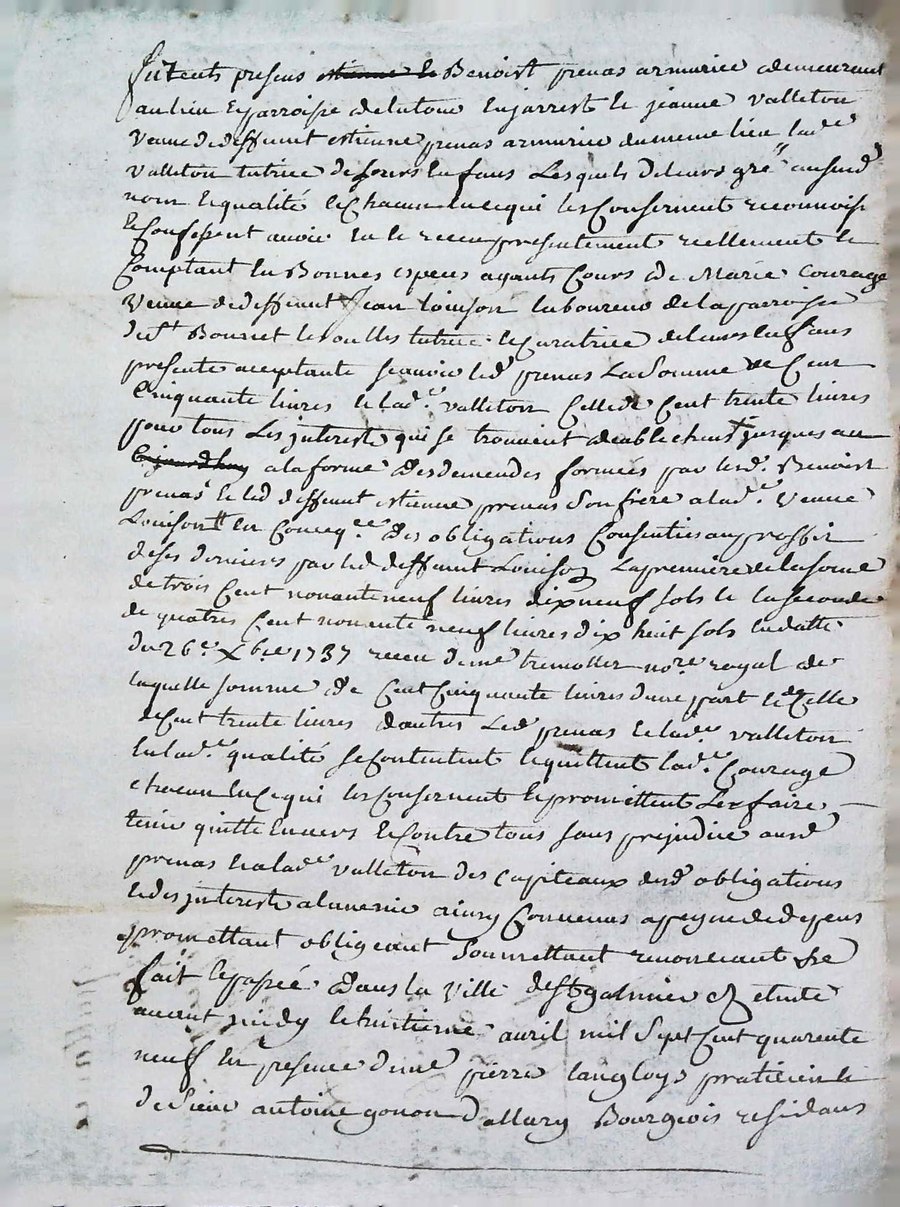 furents presens estienne et Benoist prenas armurier demeurent
au lieu et parroisse de latour en jarrest et jeanne valleton
veuve de deffunt estienne prenas armurier du meme lieu lad.e
valleton tutrice de leurs enfans Lesquels de leurs gré aususd
nom et qualité et chacun en ce qui les Consernent reconnoiss
et Confessent avoir eu et receu presentement reellement et
Comptant en Bonnes especes ayants Cours de Marie Courage
veuve de deffunt Jean Louison laboureur de la parroisse
de St Bonnet les oulles tutrice et Curatrice de leurs enfans
presente acceptante scavoir led prenas La Somme de Cent
Cinquante livres et lad.e valleton Celle de Cent trente livres
pour tous Les jnterests qui se trouvent deub escheus jusques au
aujourdhuy a la forme des demendes formées par lesd. Benoist
prenas et led deffunt estienne prenas son frere a lad.e veuve
Louison en Conceq.ce des obligations Consenties au proffit
de ses derniers par led deffunt Louison La premiere de la some
de trois Cent nonante neuf livres dixneuf sols et la seconde
de quatres Cent nonente neuf livres dix huit sols en datte
du 26e Xbre 1737 receu de me tremollet nore royal de
laquelle somme de Cent Cinquante livres d'une part et de Celle
de Cent trente livres d'autres Led prenas et lad.e valleton
en lad.e qualité se Contentent et quittent lad.e Courage
chacun en ce qui les Consernent et promettent Les faire
tenir quitte envers et Contre tous sans prejudice ausd
prenas et a lad.e valleton des Capiteaux desd obligations
et des jnterests a l'avenir ainsy Convenus a peyne de depens
promettant obligeant soumettant renonceant &c
fait et passé dans la ville de St galmier & etude
avant midy le huitieme avril mil sept Cent quarente
neuf en presence de me pierre Langloys praticien et
de sieur antoine gonon Dallury Bourgeois residans